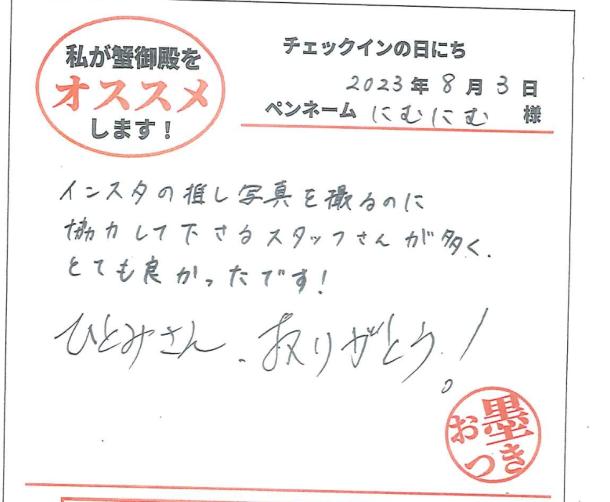 私が蟹御殿を
オススメ
します！
チェックインの日にち
2023年8月3日
ペンネーム にむにむ 様
インスタの推し写真を撮るのに
協力して下さるスタッフさんが多く、
とても良かったです！
ひとみさん、ありがとう！
お墨
つき